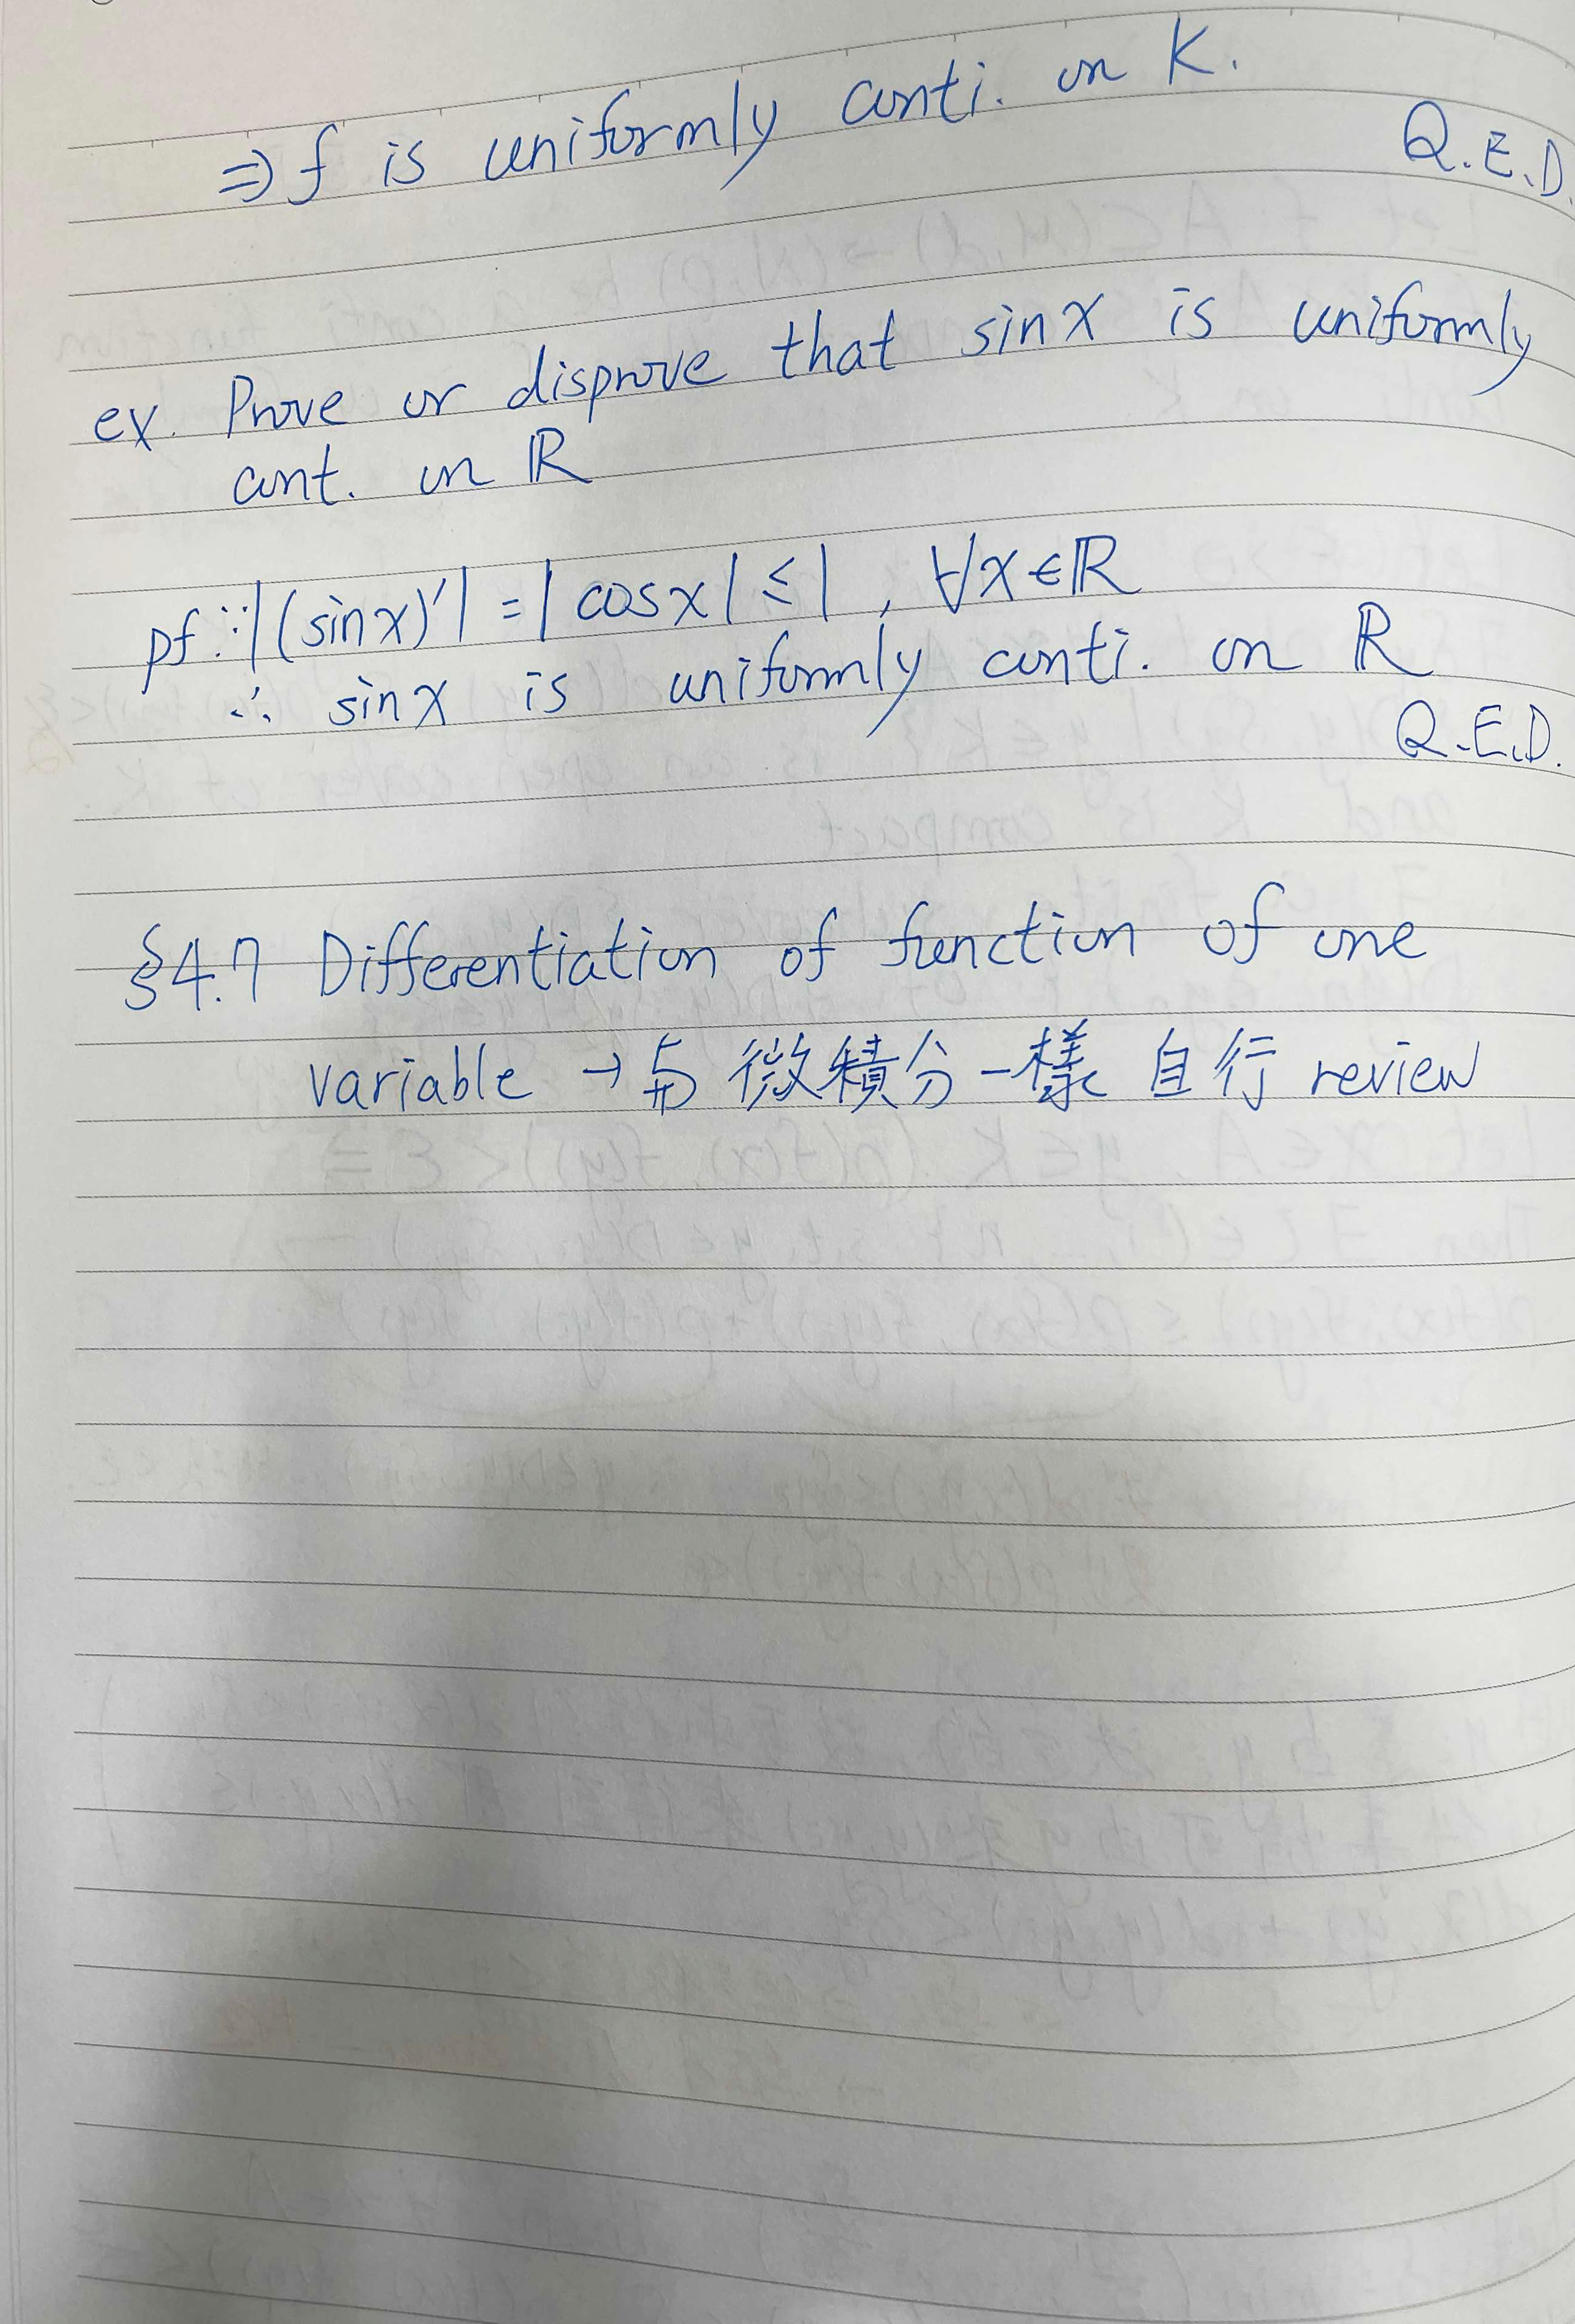 ⇒ f is uniformly conti. on K.
Q.E.D.
ex. Prove or disprove that sinx is uniformly
cont. on ℝ
pf: ∵ |(sinx)'| = |cosx| ≤ 1, ∀x∈ℝ
∴ sinx is uniformly conti. on ℝ
Q.E.D.
§4.7 Differentiation of function of one
variable → 与 微積分一樣 自行 review